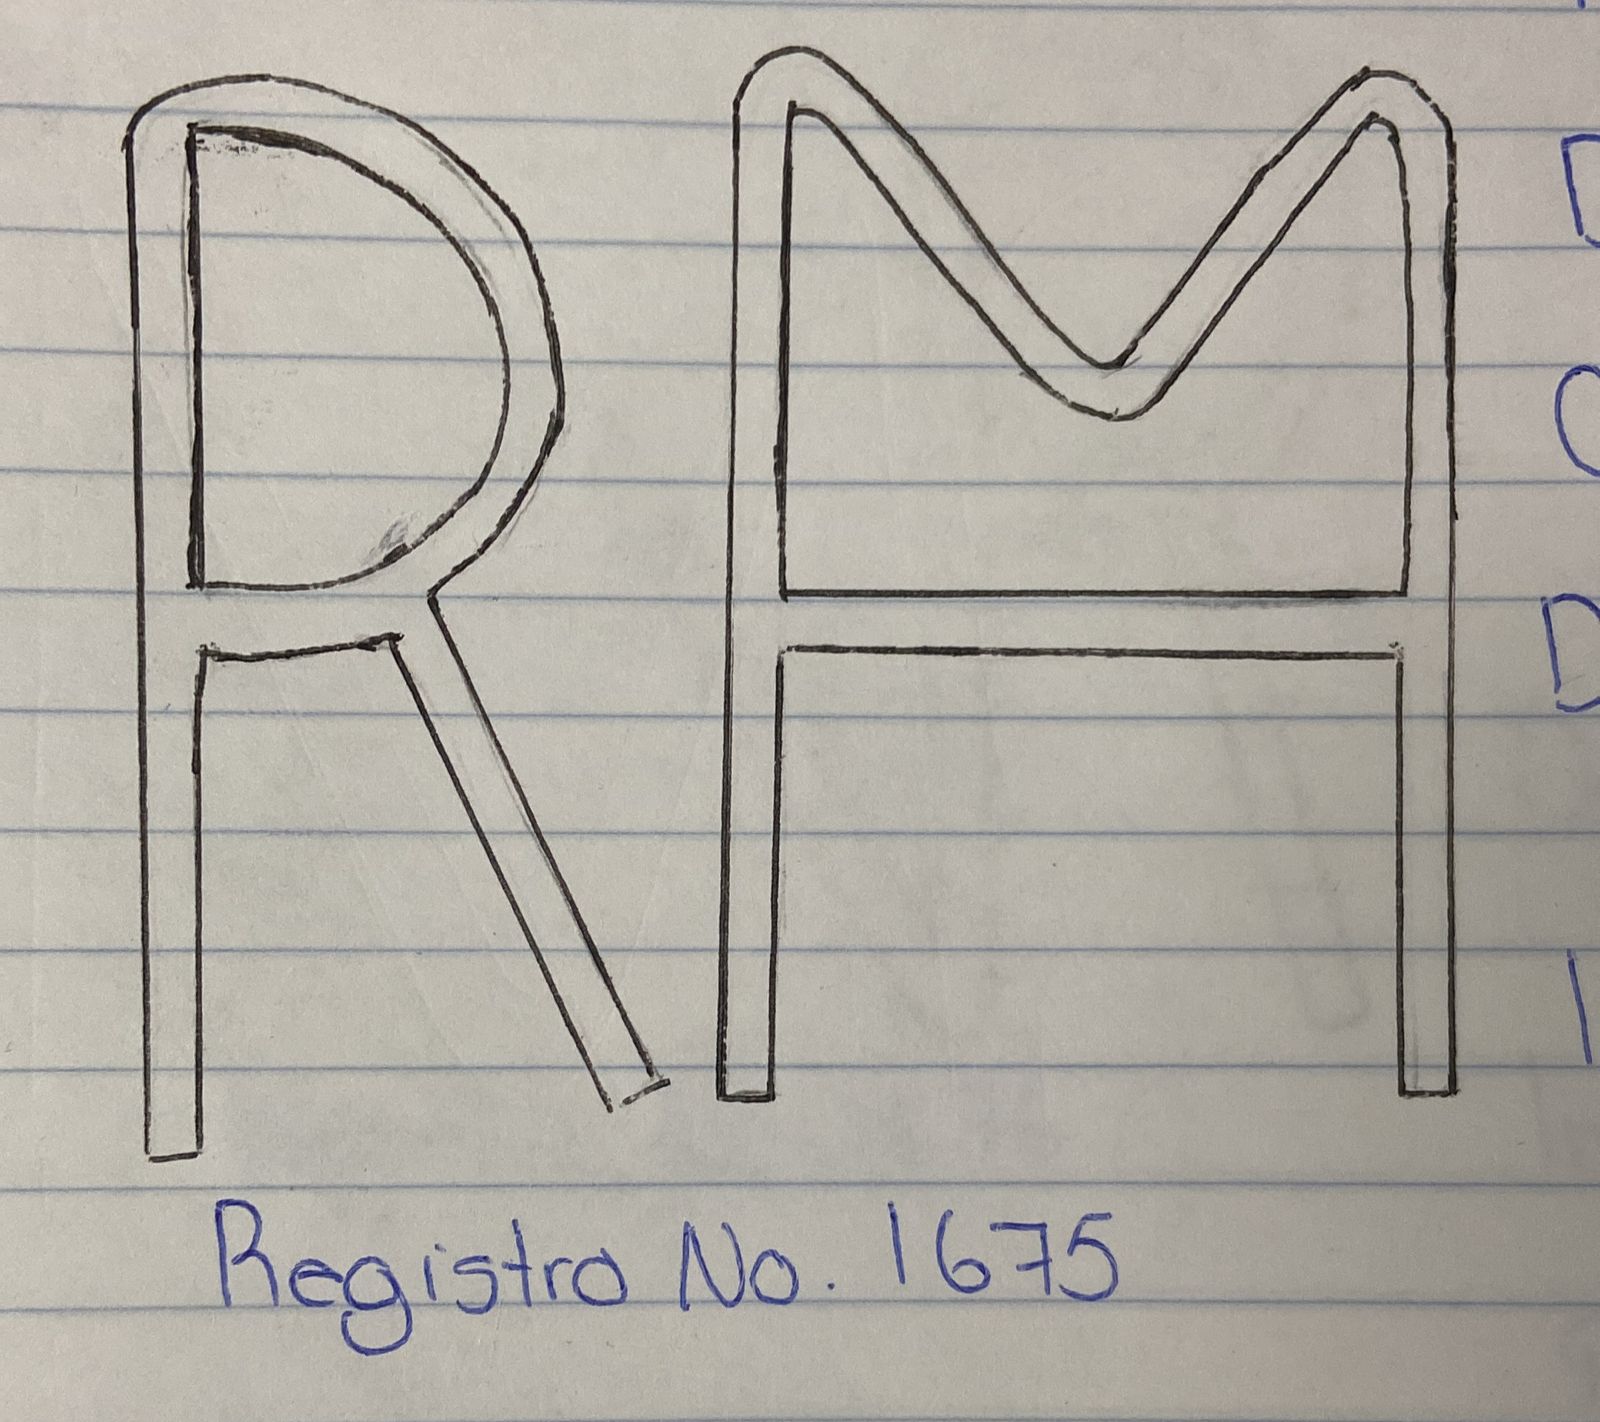 RM
Registro No. 1675